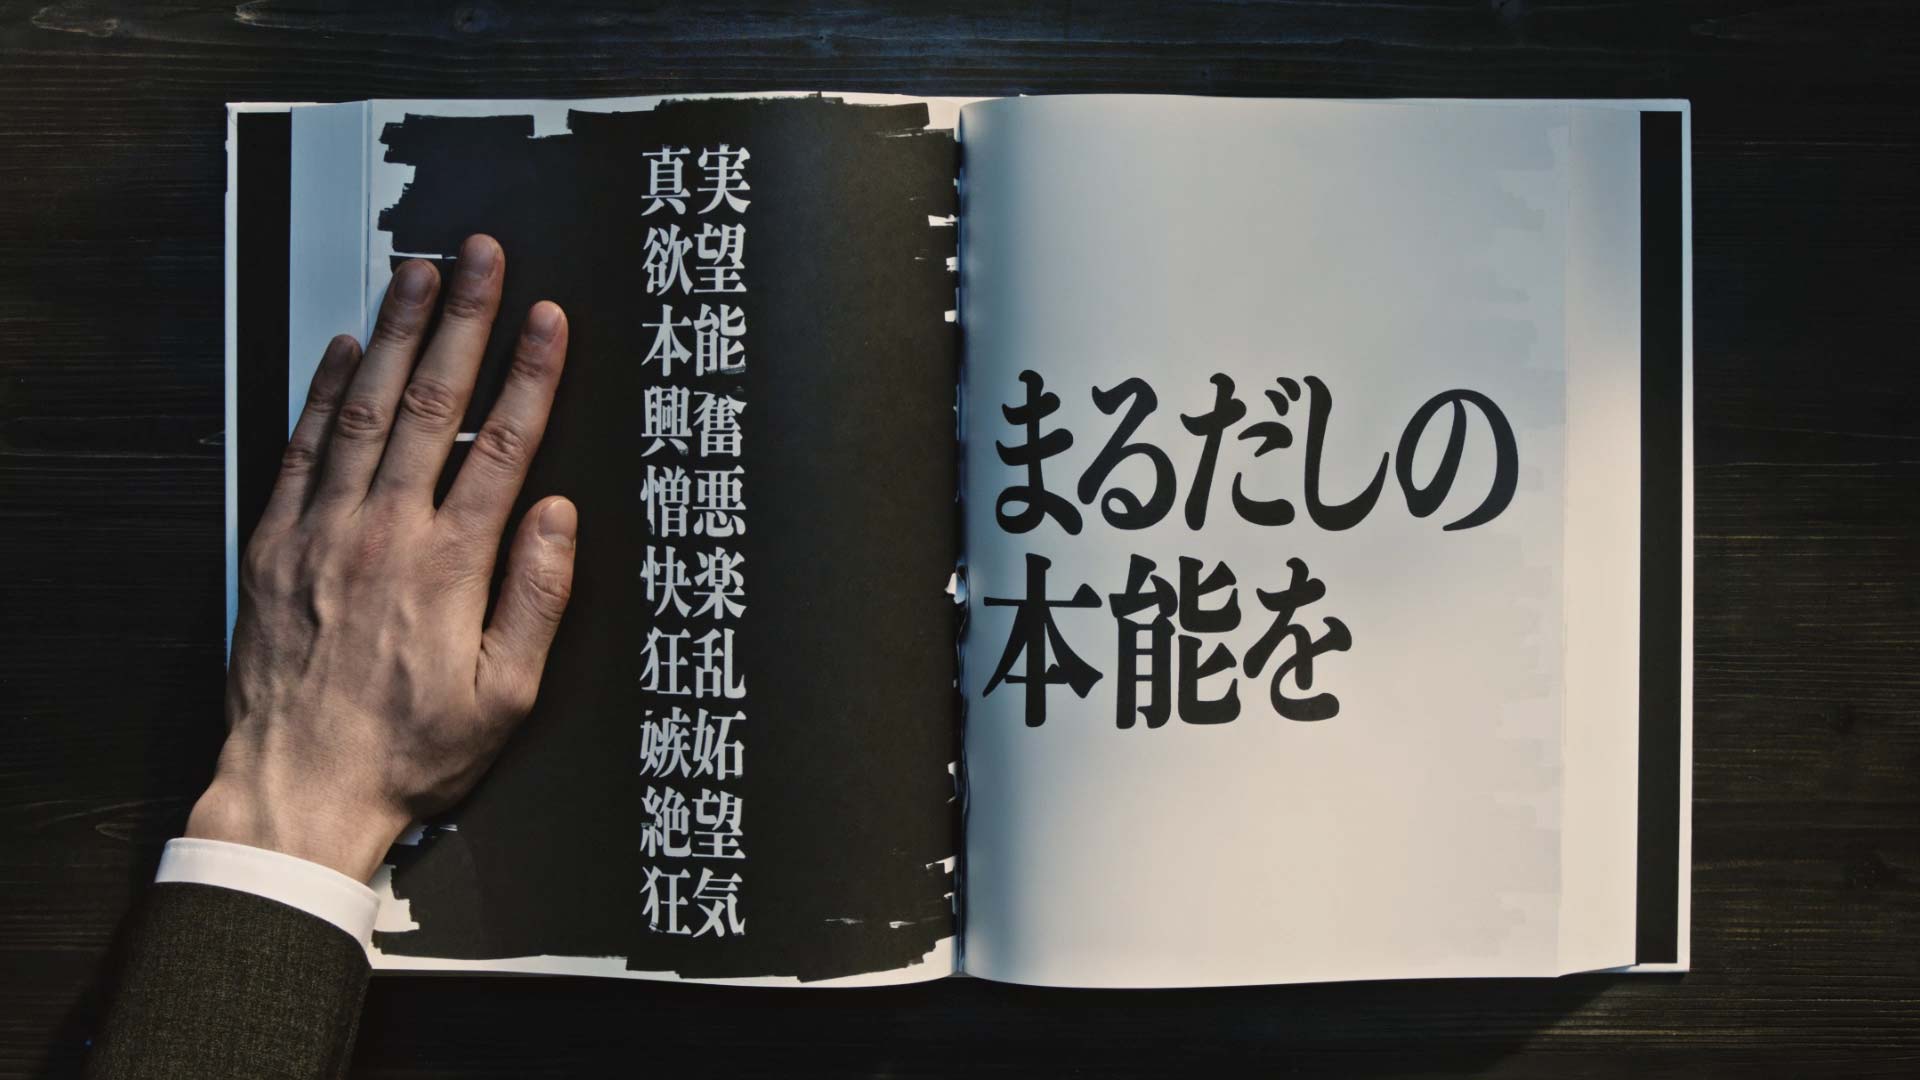 真実
欲望
本能
興奮
憎悪
快楽
狂乱
嫉妬
絶望
狂気
まるだしの
本能を